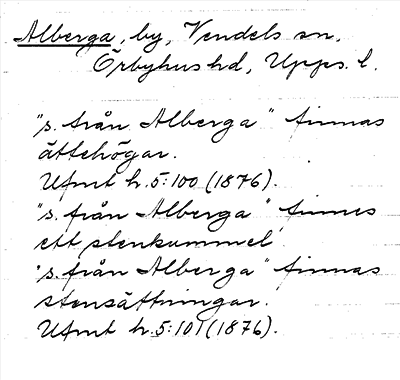 Alberga, by, Vendels sn,
Örbyhus hd, Upps. l.
"s. från Alberga" finnas
ättehögar.
Ufmt h.5:100 (1876).
"s. från Alberga" finnes
ett stenkummel.
"s. från Alberga" finnas
stensättningar.
Ufmt h.5:101 (1876).